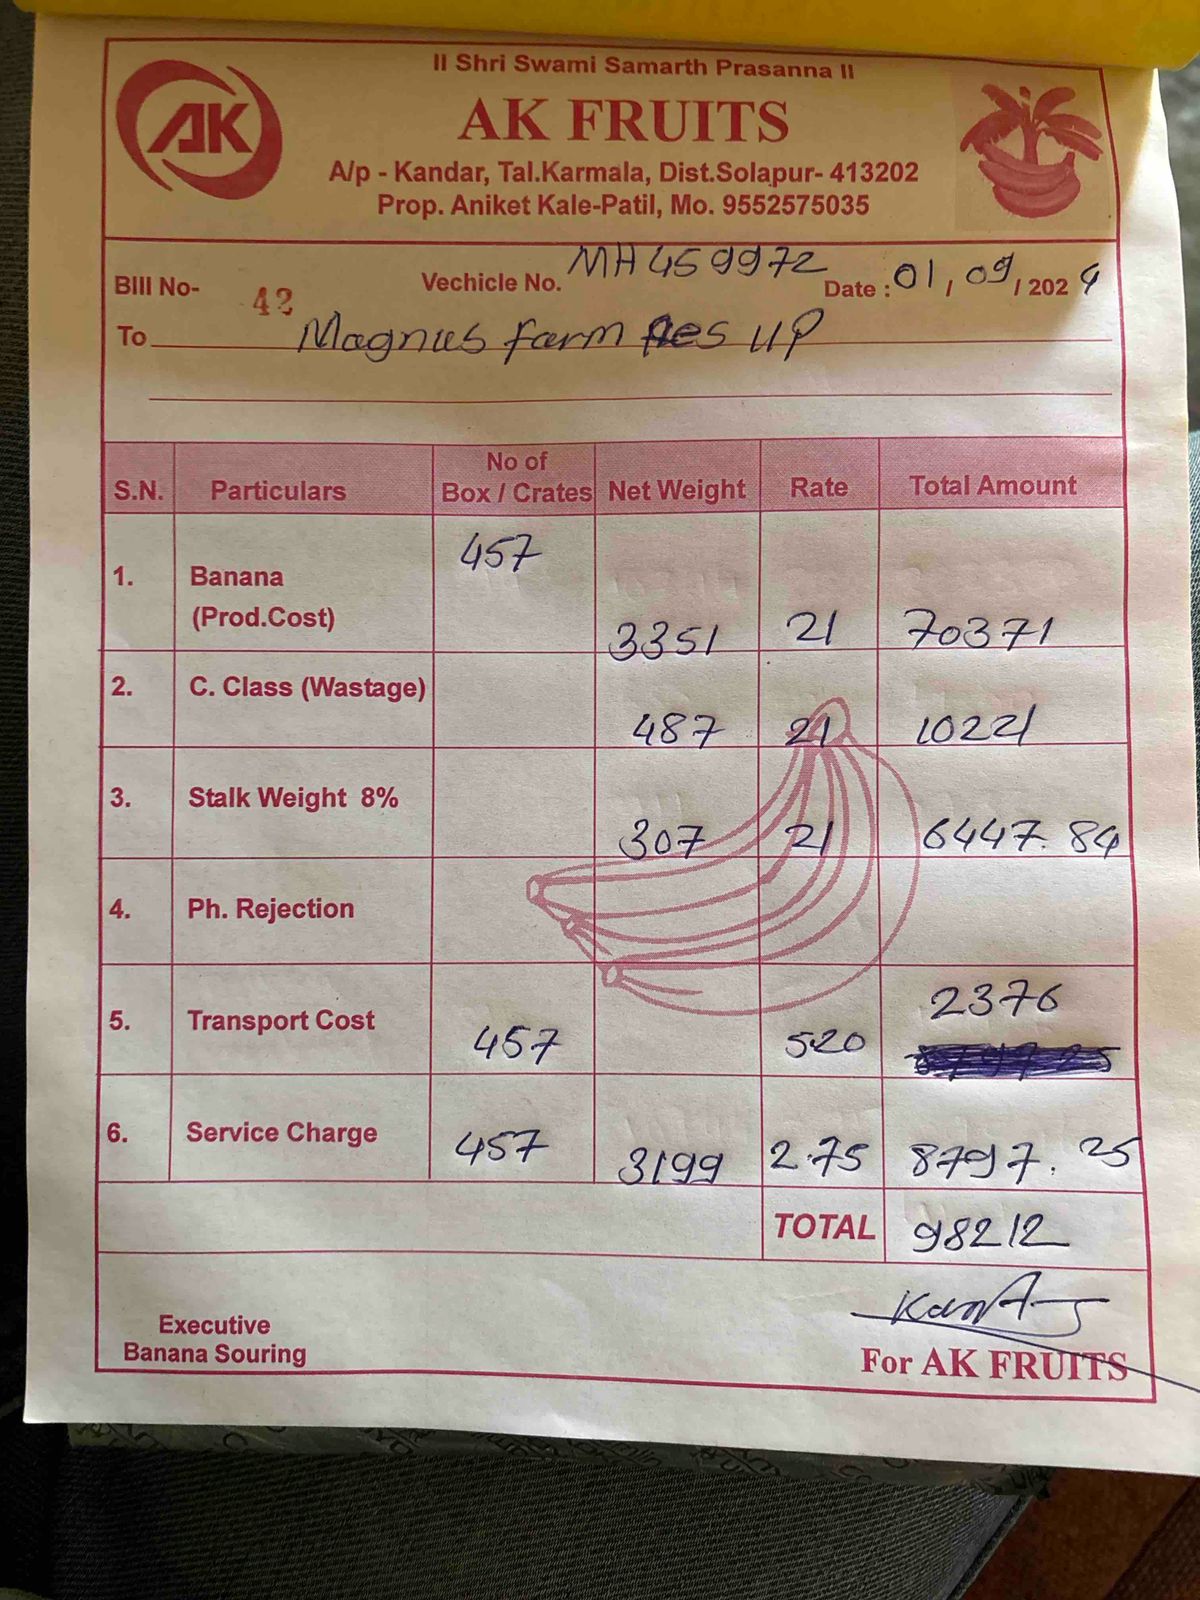 II Shri Swami Samarth Prasanna II
AK
AK FRUITS
A/p - Kandar, Tal.Karmala, Dist.Solapur- 413202
Prop. Aniket Kale-Patil, Mo. 9552575035
BIll No- 42 Vechicle No. MH459972 Date : 01/09/2024
To Magnus farm fres UP
S.N. Particulars No of Box / Crates Net Weight Rate Total Amount
1. Banana (Prod.Cost) 457 3351 21 70371
2. C. Class (Wastage) 487 21 10221
3. Stalk Weight 8% 307 21 6447.84
4. Ph. Rejection
5. Transport Cost 457 520 2376
6. Service Charge 457 3199 2.75 8797.25
TOTAL 98212
Executive
Banana Souring
For AK FRUITS